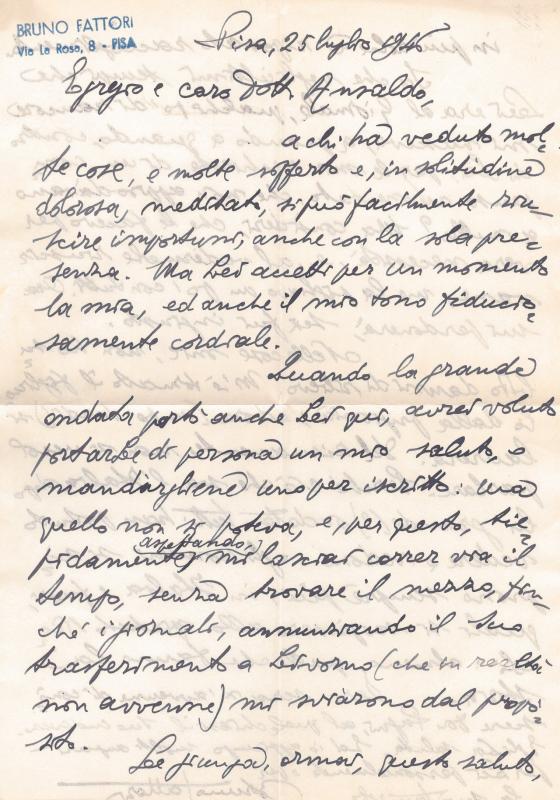 BRUNO FATTORI
Via La Rosa, 8 - PISA
Pisa, 25 luglio 1946
Egregio e caro Dott. Ansaldo,
a chi ha veduto mol-
te cose, e molte sofferto e, in solitudine
dolorosa, meditato, si può facilmente riu-
scire importuni, anche con la sola pre-
senza. Ma Lei accetti per un momento
la mia, ed anche il mio tono fiducio-
samente cordiale.
Quando la grande
ondata portò anche Lei qui, avrei voluto
portarLe di persona un mio saluto, o
mandargliene uno per iscritto: ma
quello non si poteva, e, per questo, tie-
aspettando,
pidamente mi lasciai correr via il
tempo, senza trovare il mezzo, fin-
ché i giornali, annunziando il Suo
trasferimento a Livorno (che in realtà
non avvenne) mi sviarono dal propo-
sito.
Le giunga, ormai, questo saluto,